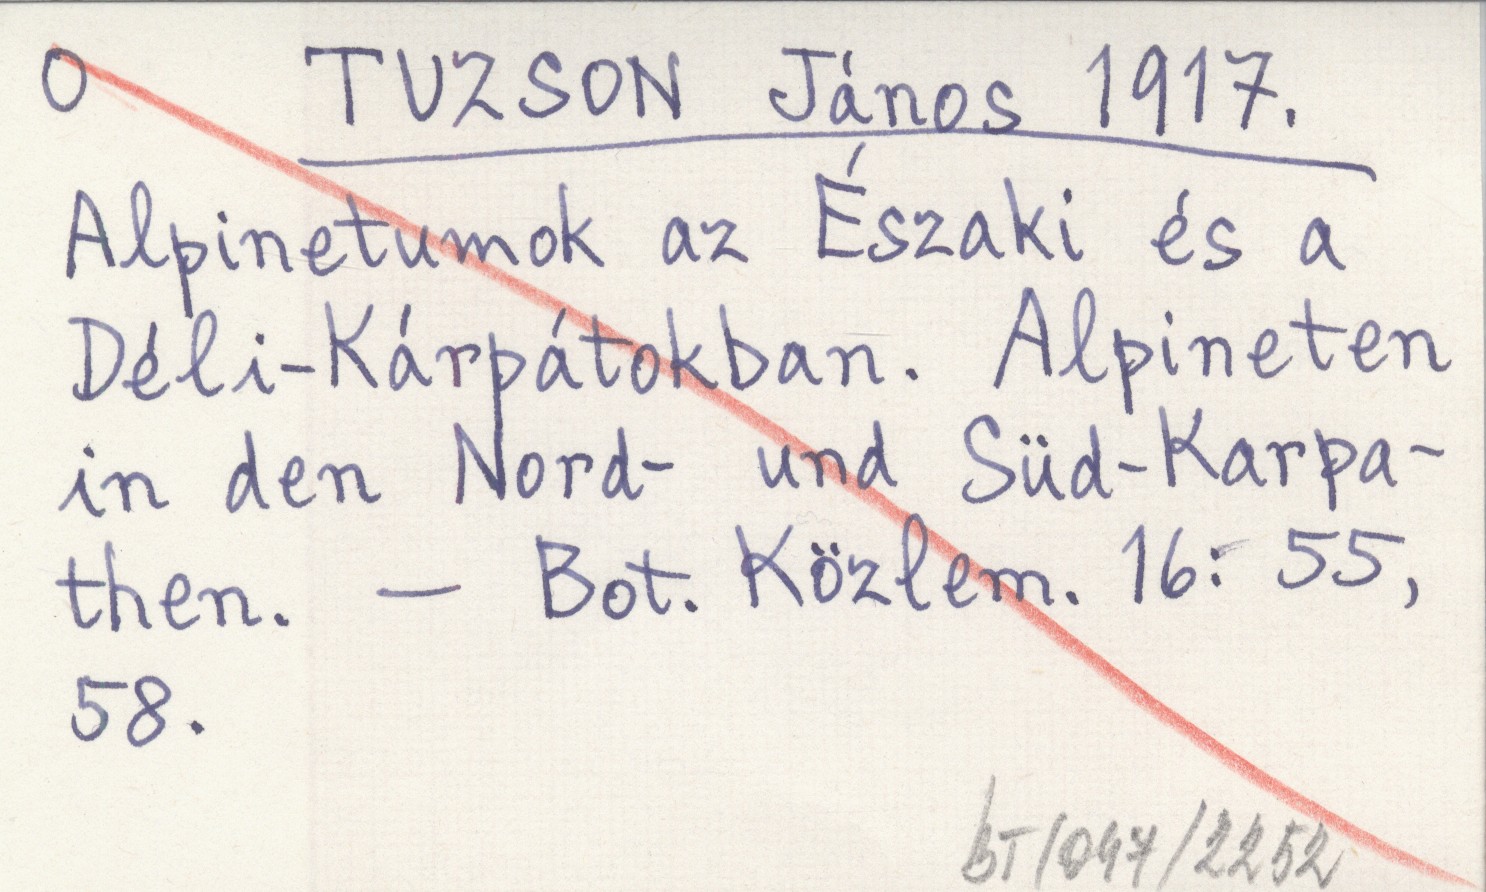 O TUZSON János 1917.
Alpinetumok az Északi és a
Déli-Kárpátokban. Alpineten
in den Nord- und Süd-Karpa-
then. — Bot. Közlem. 16: 55,
58.
bT/047/2252